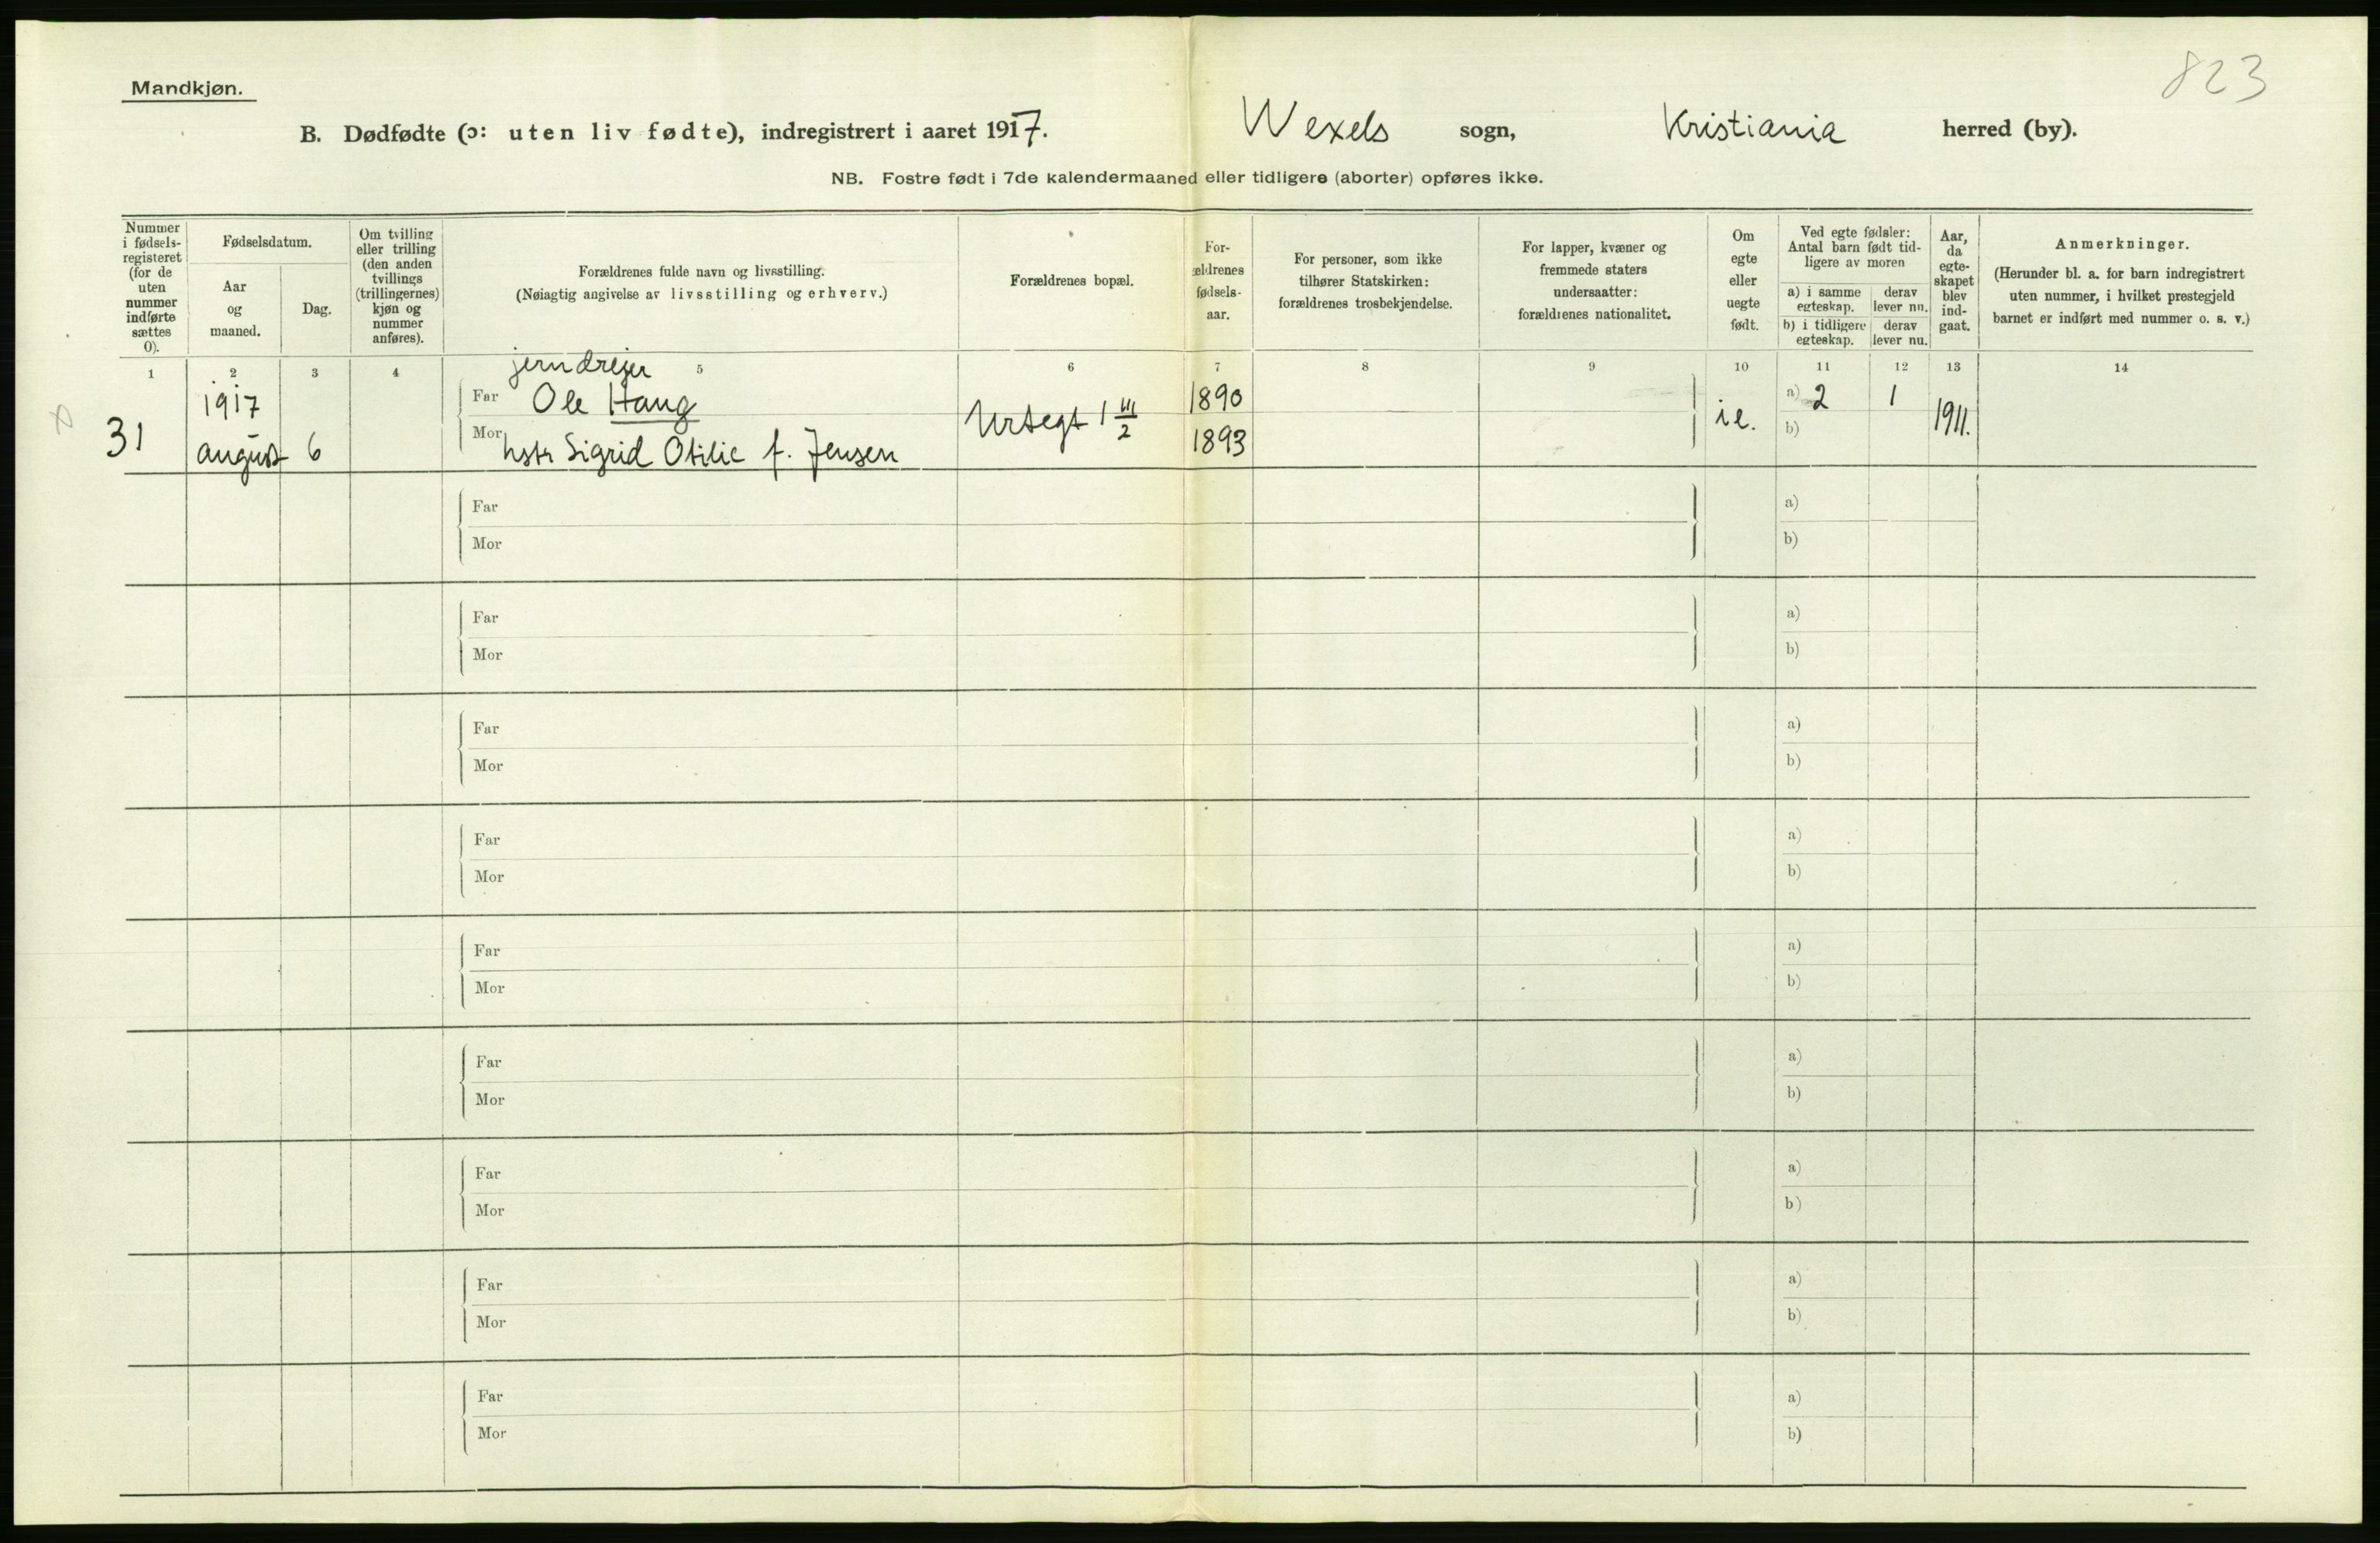 823
Mandkjøn.
B. Dødfødte (ɔ: uten liv fødte), indregistrert i aaret 1917. Wexels sogn, Kristiania herred (by).
NB. Fostre født i 7de kalendermaaned eller tidligere (aborter) opføres ikke.
Nummer i fødsels-registeret (for de uten nummer indførte sættes 0).
Fødselsdatum.
Aar og maaned.
Dag.
Om tvilling eller trilling (den anden tvillings (trillingernes) kjøn og nummer anføres).
Forældrenes fulde navn og livsstilling.
(Nøiagtig angivelse av livsstilling og erhverv.)
Forældrenes bopæl.
For-ældrenes fødsels-aar.
For personer, som ikke tilhører Statskirken: forældrenes trosbekjendelse.
For lapper, kvæner og fremmede staters undersaatter: forældrenes nationalitet.
Om egte eller uegte født.
Ved egte fødsler: Antal barn født tid-ligere av moren
a) i samme egteskap.
derav lever nu.
b) i tidligere egteskap.
derav lever nu.
Aar, da egte-skapet blev ind-gaat.
Anmerkninger.
(Herunder bl. a. for barn indregistrert uten nummer, i hvilket prestegjeld barnet er indført med nummer o. s. v.)
1 2 3 4 5 6 7 8 9 10 11 12 13 14
jerndrejer
1917 Far Ole Haug 1890 a) 2 1
31 Urtegt 1 III/2 ie. 1911.
august 6 Mor hstr Sigrid Otilie f. Jensen 1893 b)
Far a)
Mor b)
Far a)
Mor b)
Far a)
Mor b)
Far a)
Mor b)
Far a)
Mor b)
Far a)
Mor b)
Far a)
Mor b)
Far a)
Mor b)
Far a)
Mor b)